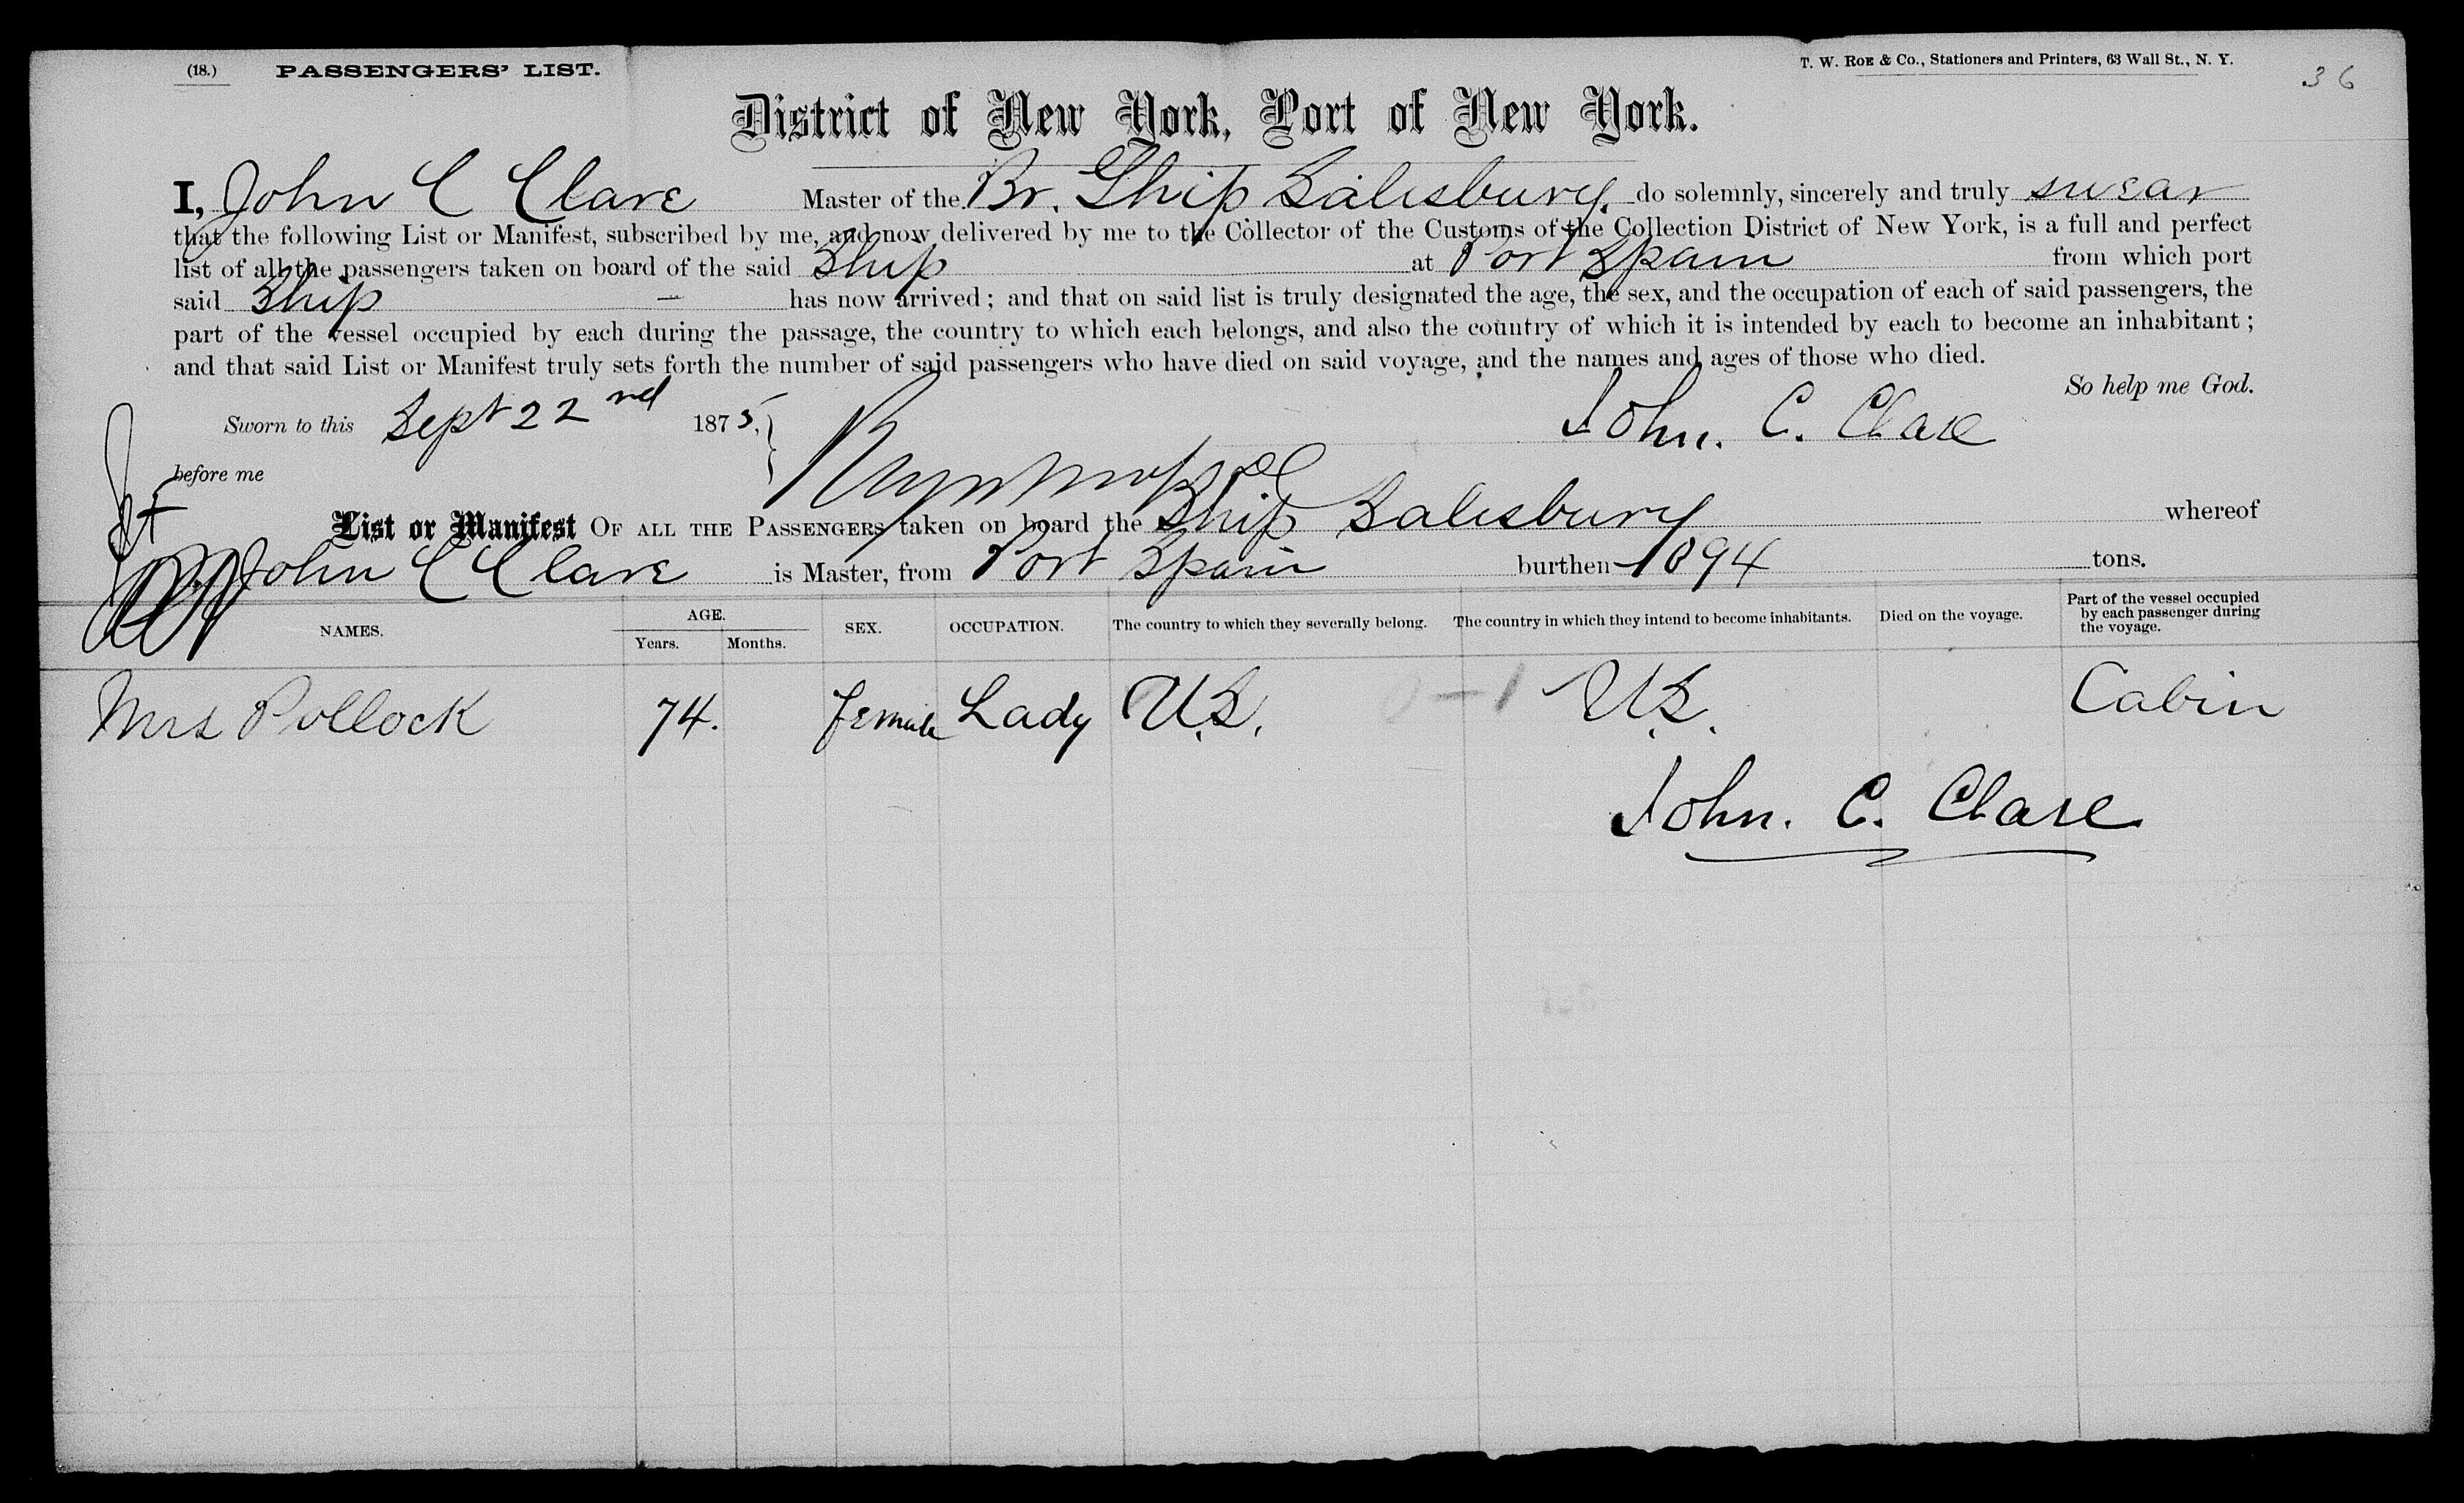 (18.) PASSENGERS' LIST. T. W. ROE & Co., Stationers and Printers, 63 Wall St., N. Y. 36
District of New York, Port of New York.
I, John C Clare Master of the Br. Ship Salisbury. do solemnly, sincerely and truly swear
that the following List or Manifest, subscribed by me, and now delivered by me to the Collector of the Customs of the Collection District of New York, is a full and perfect
list of all the passengers taken on board of the said Ship at Port Spain from which port
said Ship — has now arrived; and that on said list is truly designated the age, the sex, and the occupation of each of said passengers, the
part of the vessel occupied by each during the passage, the country to which each belongs, and also the country of which it is intended by each to become an inhabitant;
and that said List or Manifest truly sets forth the number of said passengers who have died on said voyage, and the names and ages of those who died.
So help me God.
Sworn to this Sept 22nd 1875, John. C. Clare
before me
List or Manifest OF ALL THE PASSENGERS taken on board the Ship Salisbury whereof
John C Clare is Master, from Port Spain burthen 1094 tons.
NAMES. AGE. Years. Months. SEX. OCCUPATION. The country to which they severally belong. The country in which they intend to become inhabitants. Died on the voyage. Part of the vessel occupied by each passenger during the voyage.
Mrs Pollock 74. female Lady U.S. U.S. Cabin
John. C. Clare